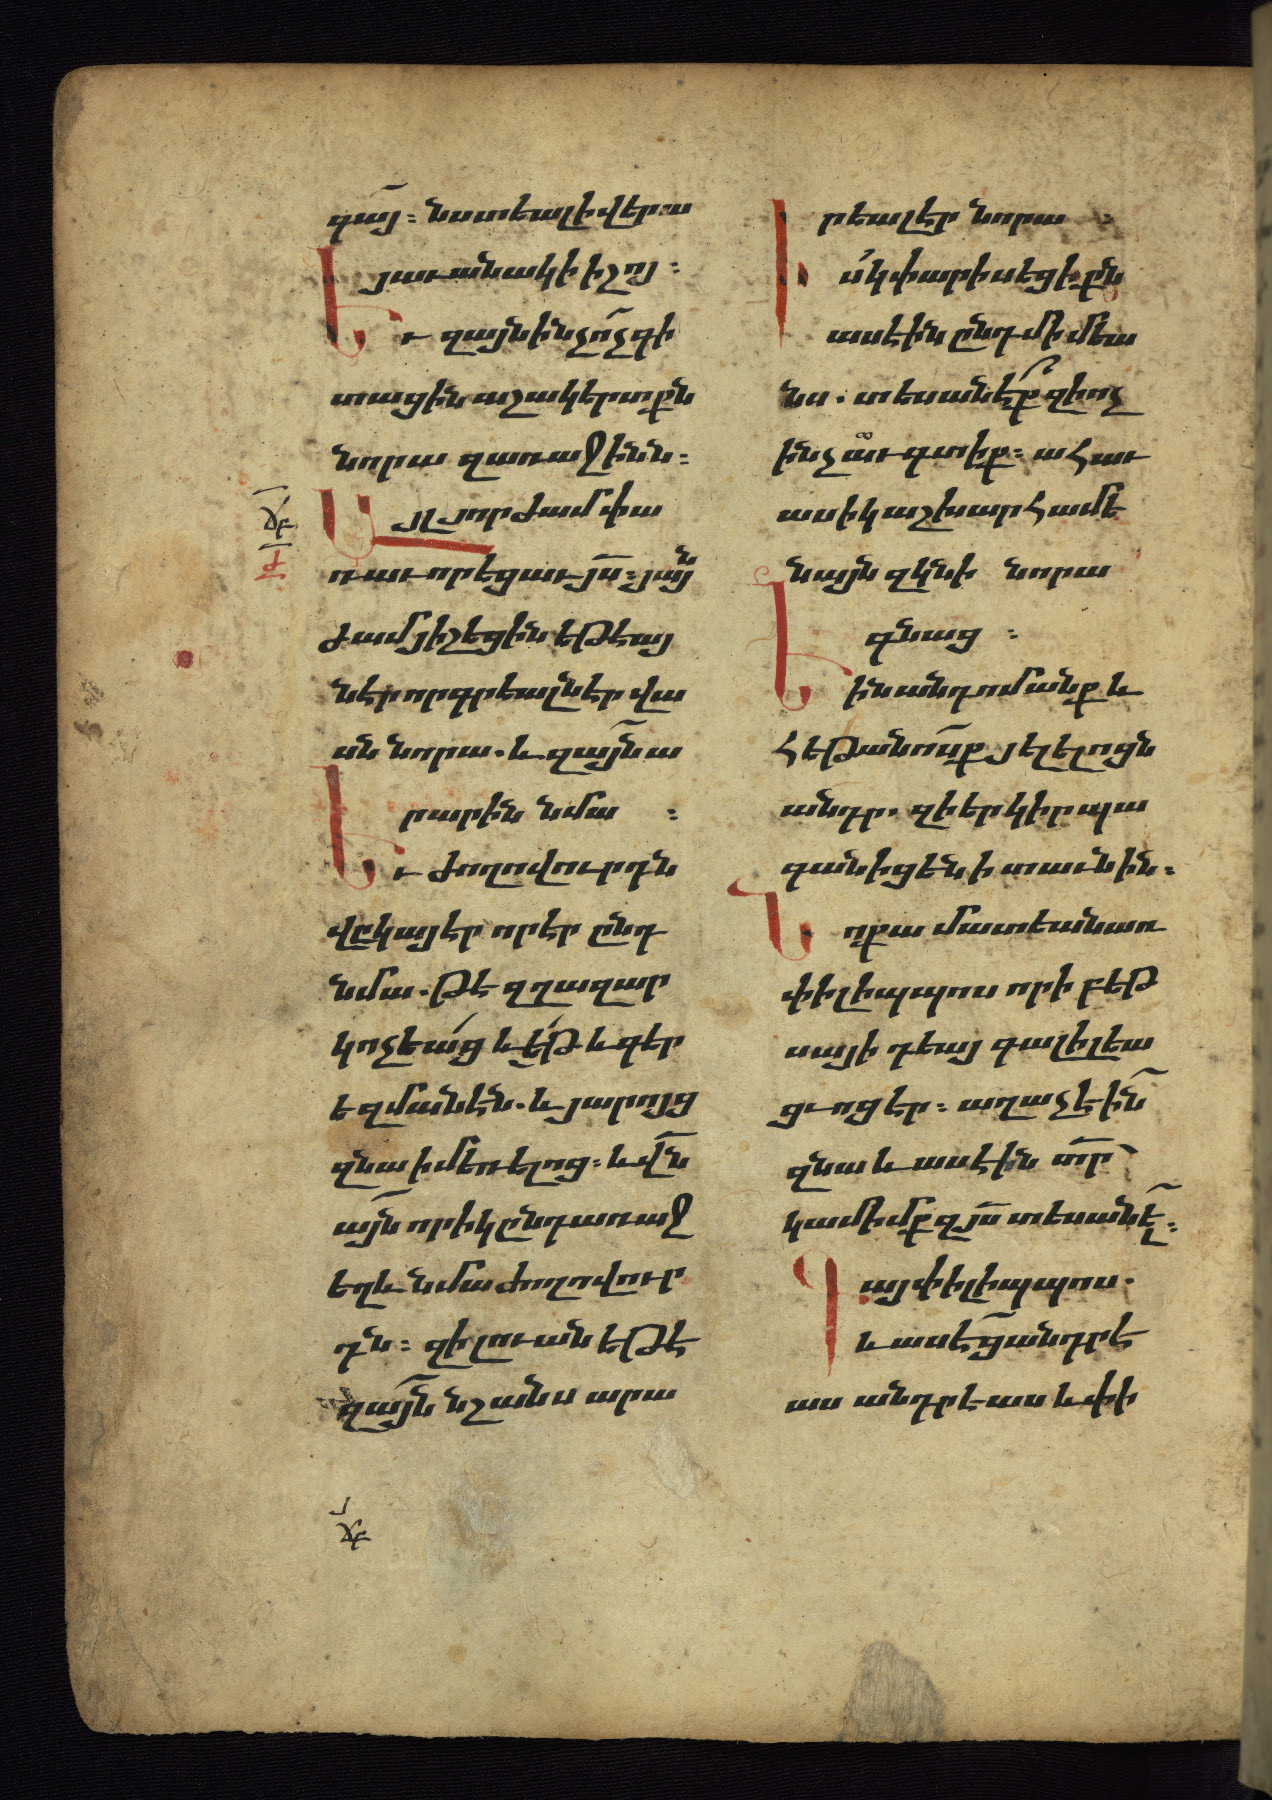 գա՜յ։ նստեալ ի վերա
յաւանակի իշոյ։
Եւ զայն ինչ ո՜չ գի
տացին աշակերտքն
նորա զառաջինն։
ՃԲ
Ժ
Այլ յորժամ փա
ռաւորեցաւ յ՜ս։ յայն
ժամ յիշեցին եթէ այ
ն էր որ գրեալ ն էր վա
սն նորա. և զայ՜ն ա
րարին նմա ։
Եւ ժողովուրդն
վըկայեր որ էր ընդ
նմա. թէ զղազար
կոչեա՛ց և ե՛թ ի գեր
եզմանէն. և յարոյց
զնա ի մեռելոց։ և վ՜ն
այ՜ն որիկ ընդառաջ
եղև նմա ժողովուր
դն։ զի լուան եթէ
զայ՜ն նշանս արա
ՃԲ
րեալ էր նորա ։
Իս՛կ փարիսեցիքն
ասէին ընդ միմեա
նս. տեսանէ՜ք զի ոչ
ինչ աւգտիք։ ահաւ
ասիկ աշխարհ ամե
նայն զկնի նորա
գնաց ։
Եին անդ ոմանք և
հեթանո՜սք յելելոցն
անդր. զի երկիր պա
գանիցէն ի տաւնին։
Նոքա մատեան առ
փիլիպպոս որ ի բեթ
սայիդեայ գալիլեա
ցւոց էր։ աղաչեի՜ն
զնա և ասէին տ՜ր
կամիմք զյ՜ս տեսանե՜լ։
Գայ փիլիպպոս.
և ասէ ցանդրէ
աս անդրէաս և փի